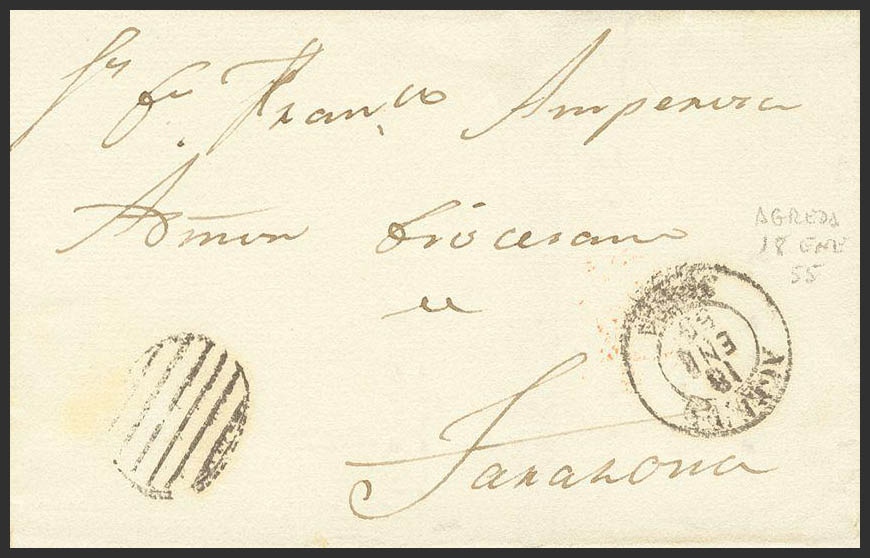 Sr Dn Franco Ampervia
Admor Diocesano
de
Tarazona
AGREDA
18 ENE
55
AGREDA
18
ENE